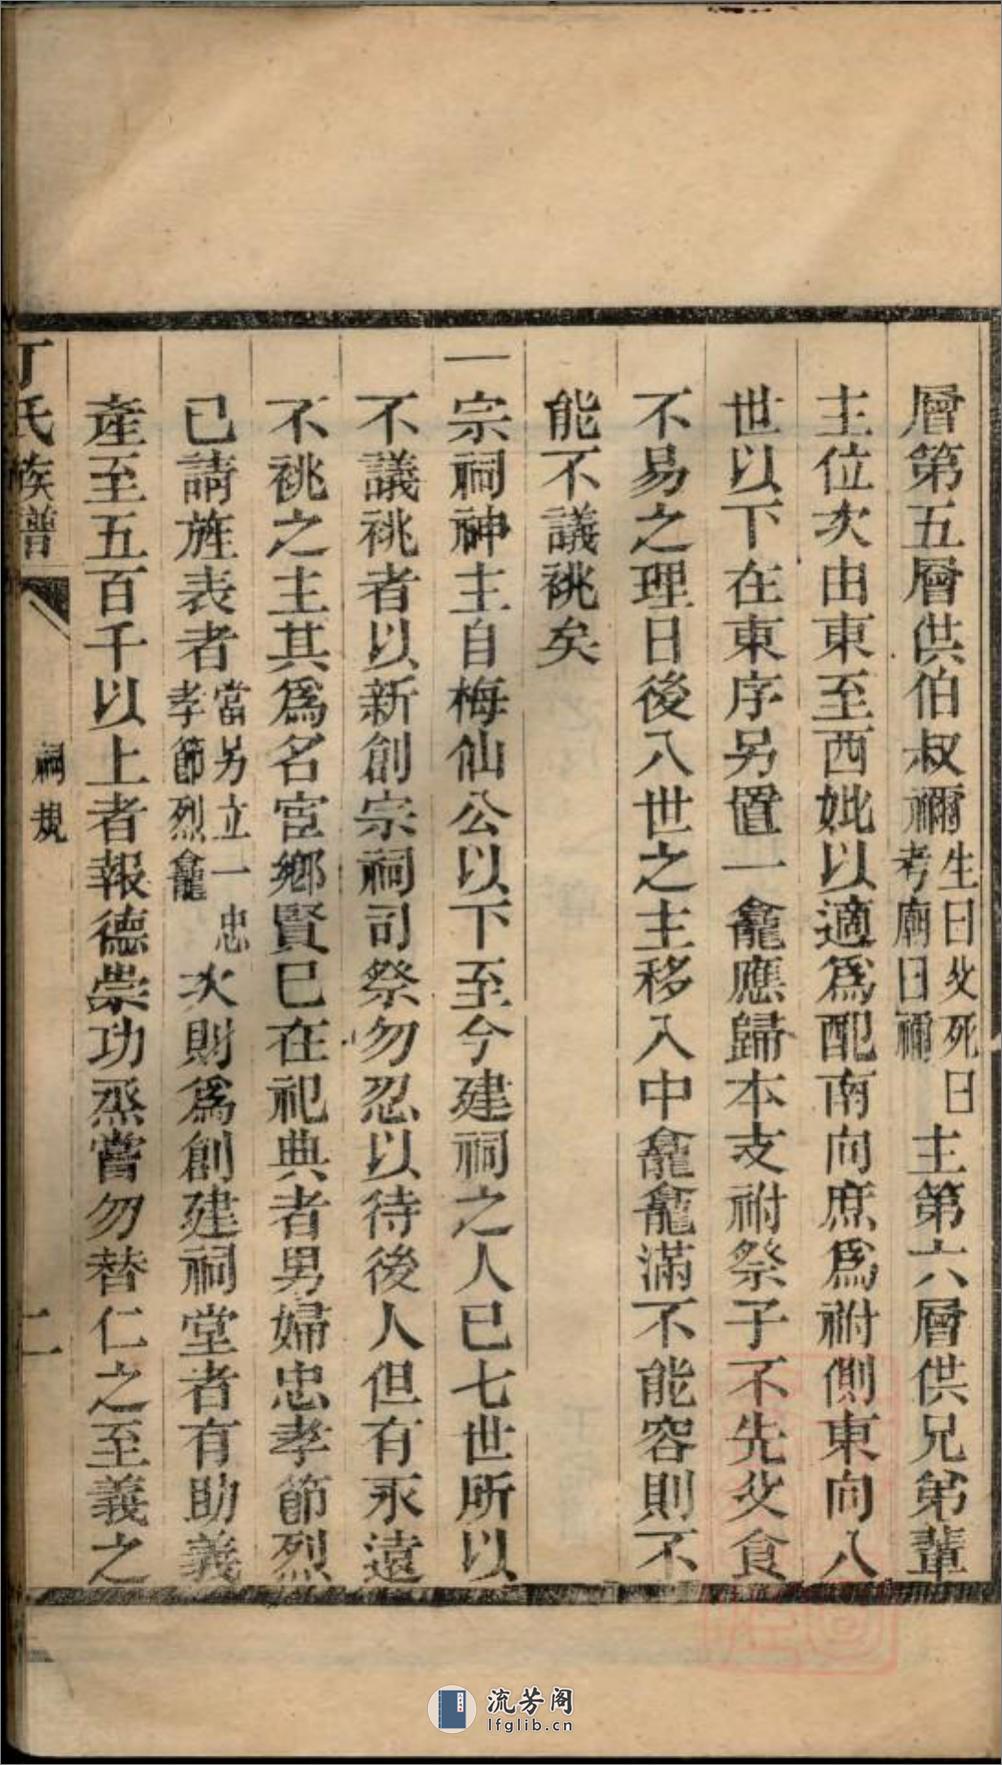 層第五層供伯叔禰生曰父死曰考廟曰禰主第六層供兄弟輩
主位次由東至西妣以適爲配南向庶爲祔側東向八
世以下在東序另置一龕應歸本支祔祭子不先父食
不易之理日後八世之主移入中龕龕滿不能容則不
能不議祧矣
一宗祠神主自梅仙公以下至今建祠之人已七世所以
不議祧者以新創宗祠司祭勿忍以待後人但有永遠
不祧之主其爲名宦鄉賢已在祀典者男婦忠孝節烈
已請旌表者當另立一忠孝節烈龕次則爲創建祠堂者有助義
產至五百千以上者報德崇功烝嘗勿替仁之至義之
丁氏族譜
祠規
二
流芳阁
lfglib.cn